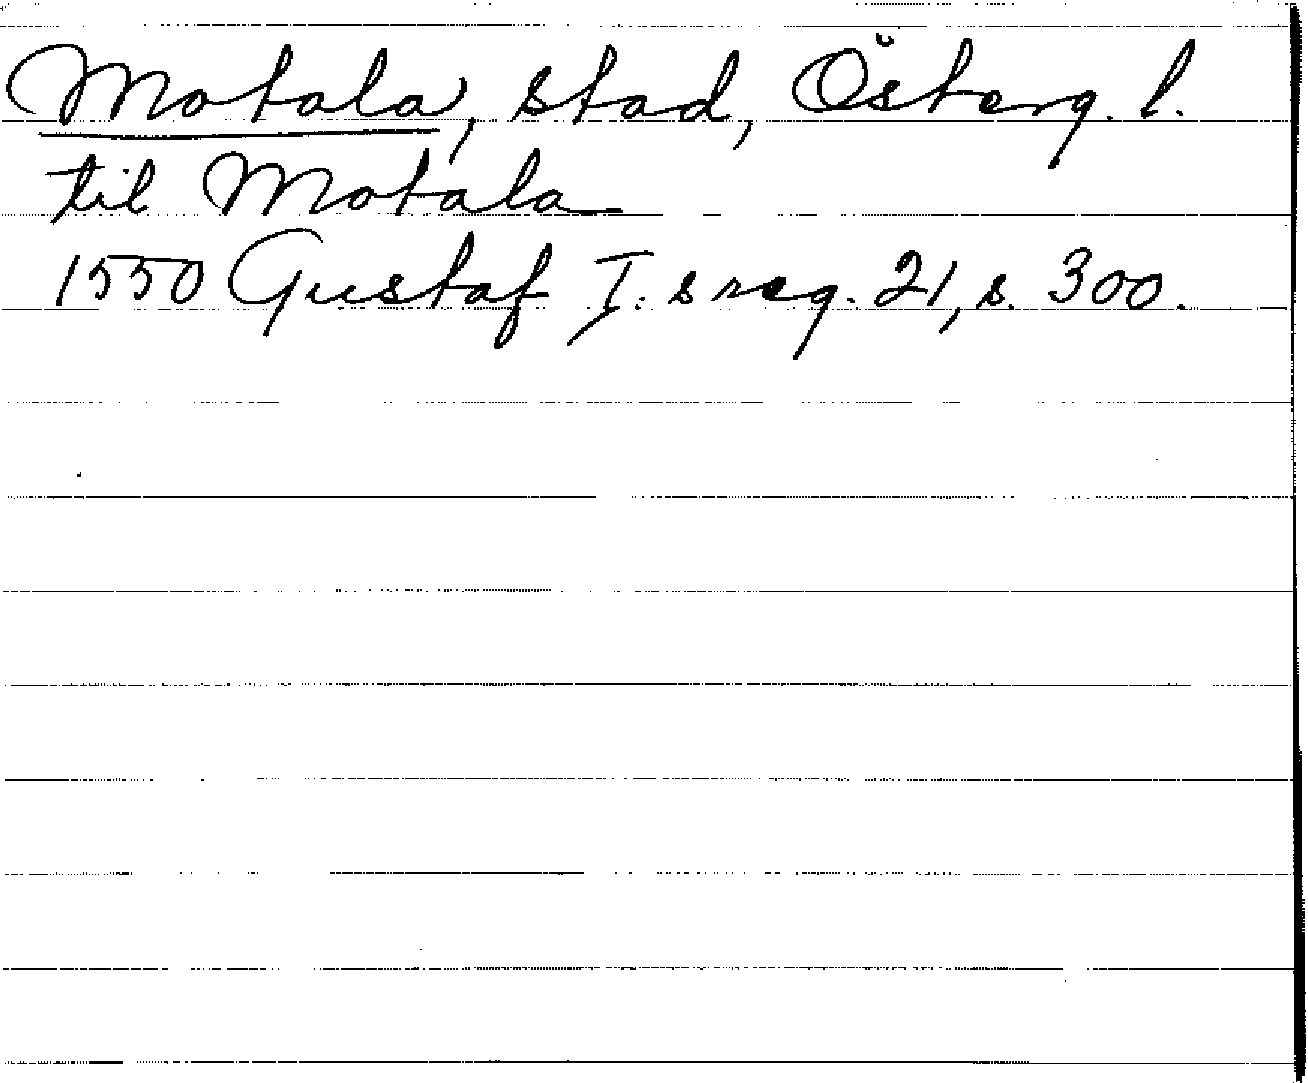 Motala, stad, Österg. l.
til Motala
1550 Gustaf I:s reg. 21, s. 300.